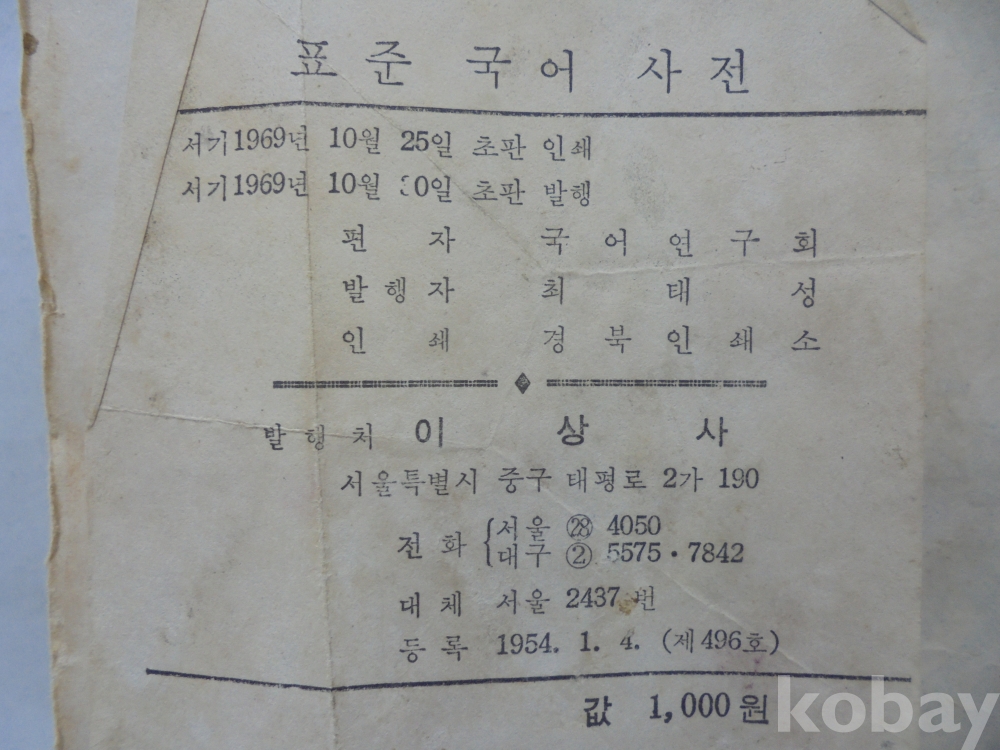 표준 국어 사전
서기 1969년 10월 25일 초판 인쇄
서기 1969년 10월 30일 초판 발행
편 자 국 어 연 구 회
발 행 자 최 태 성
인 쇄 경 북 인 쇄 소
발 행 처 이 상 사
서울특별시 중구 태평로 2가 190
전 화 { 서울 ㉘ 4050
대구 ② 5575・7842
대 체 서울 2437 번
등 록 1954. 1. 4. (제496호)
값 1,000원
kobay